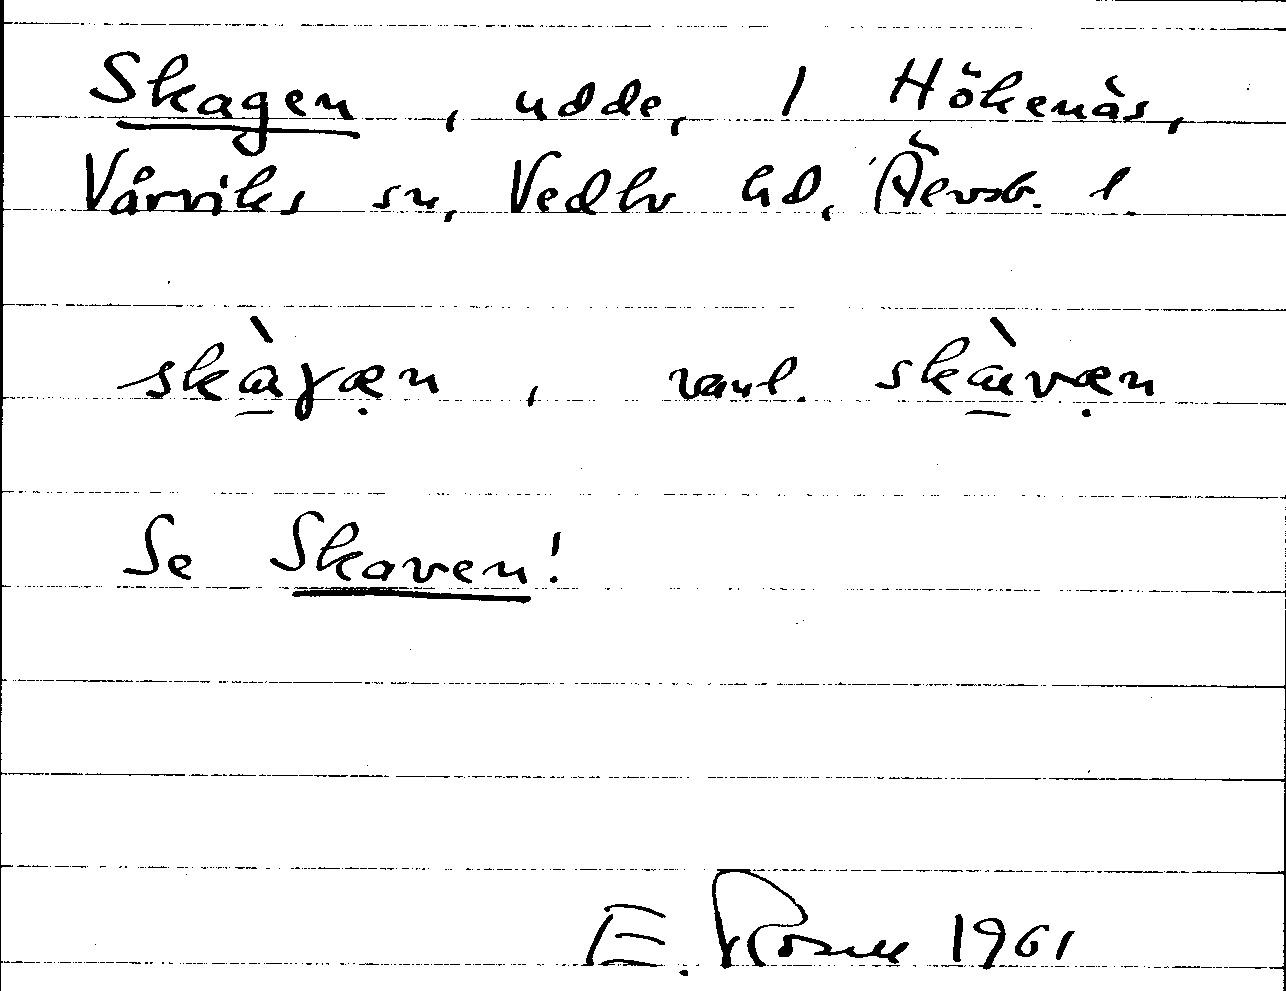 Skagen, udde, i Hökenäs,
Vårviks sn, Vedbo hd, Älvsb. l.
skàɣæ̣n, vanl. skàvæ̣n
Se Skaven!
E. 1961